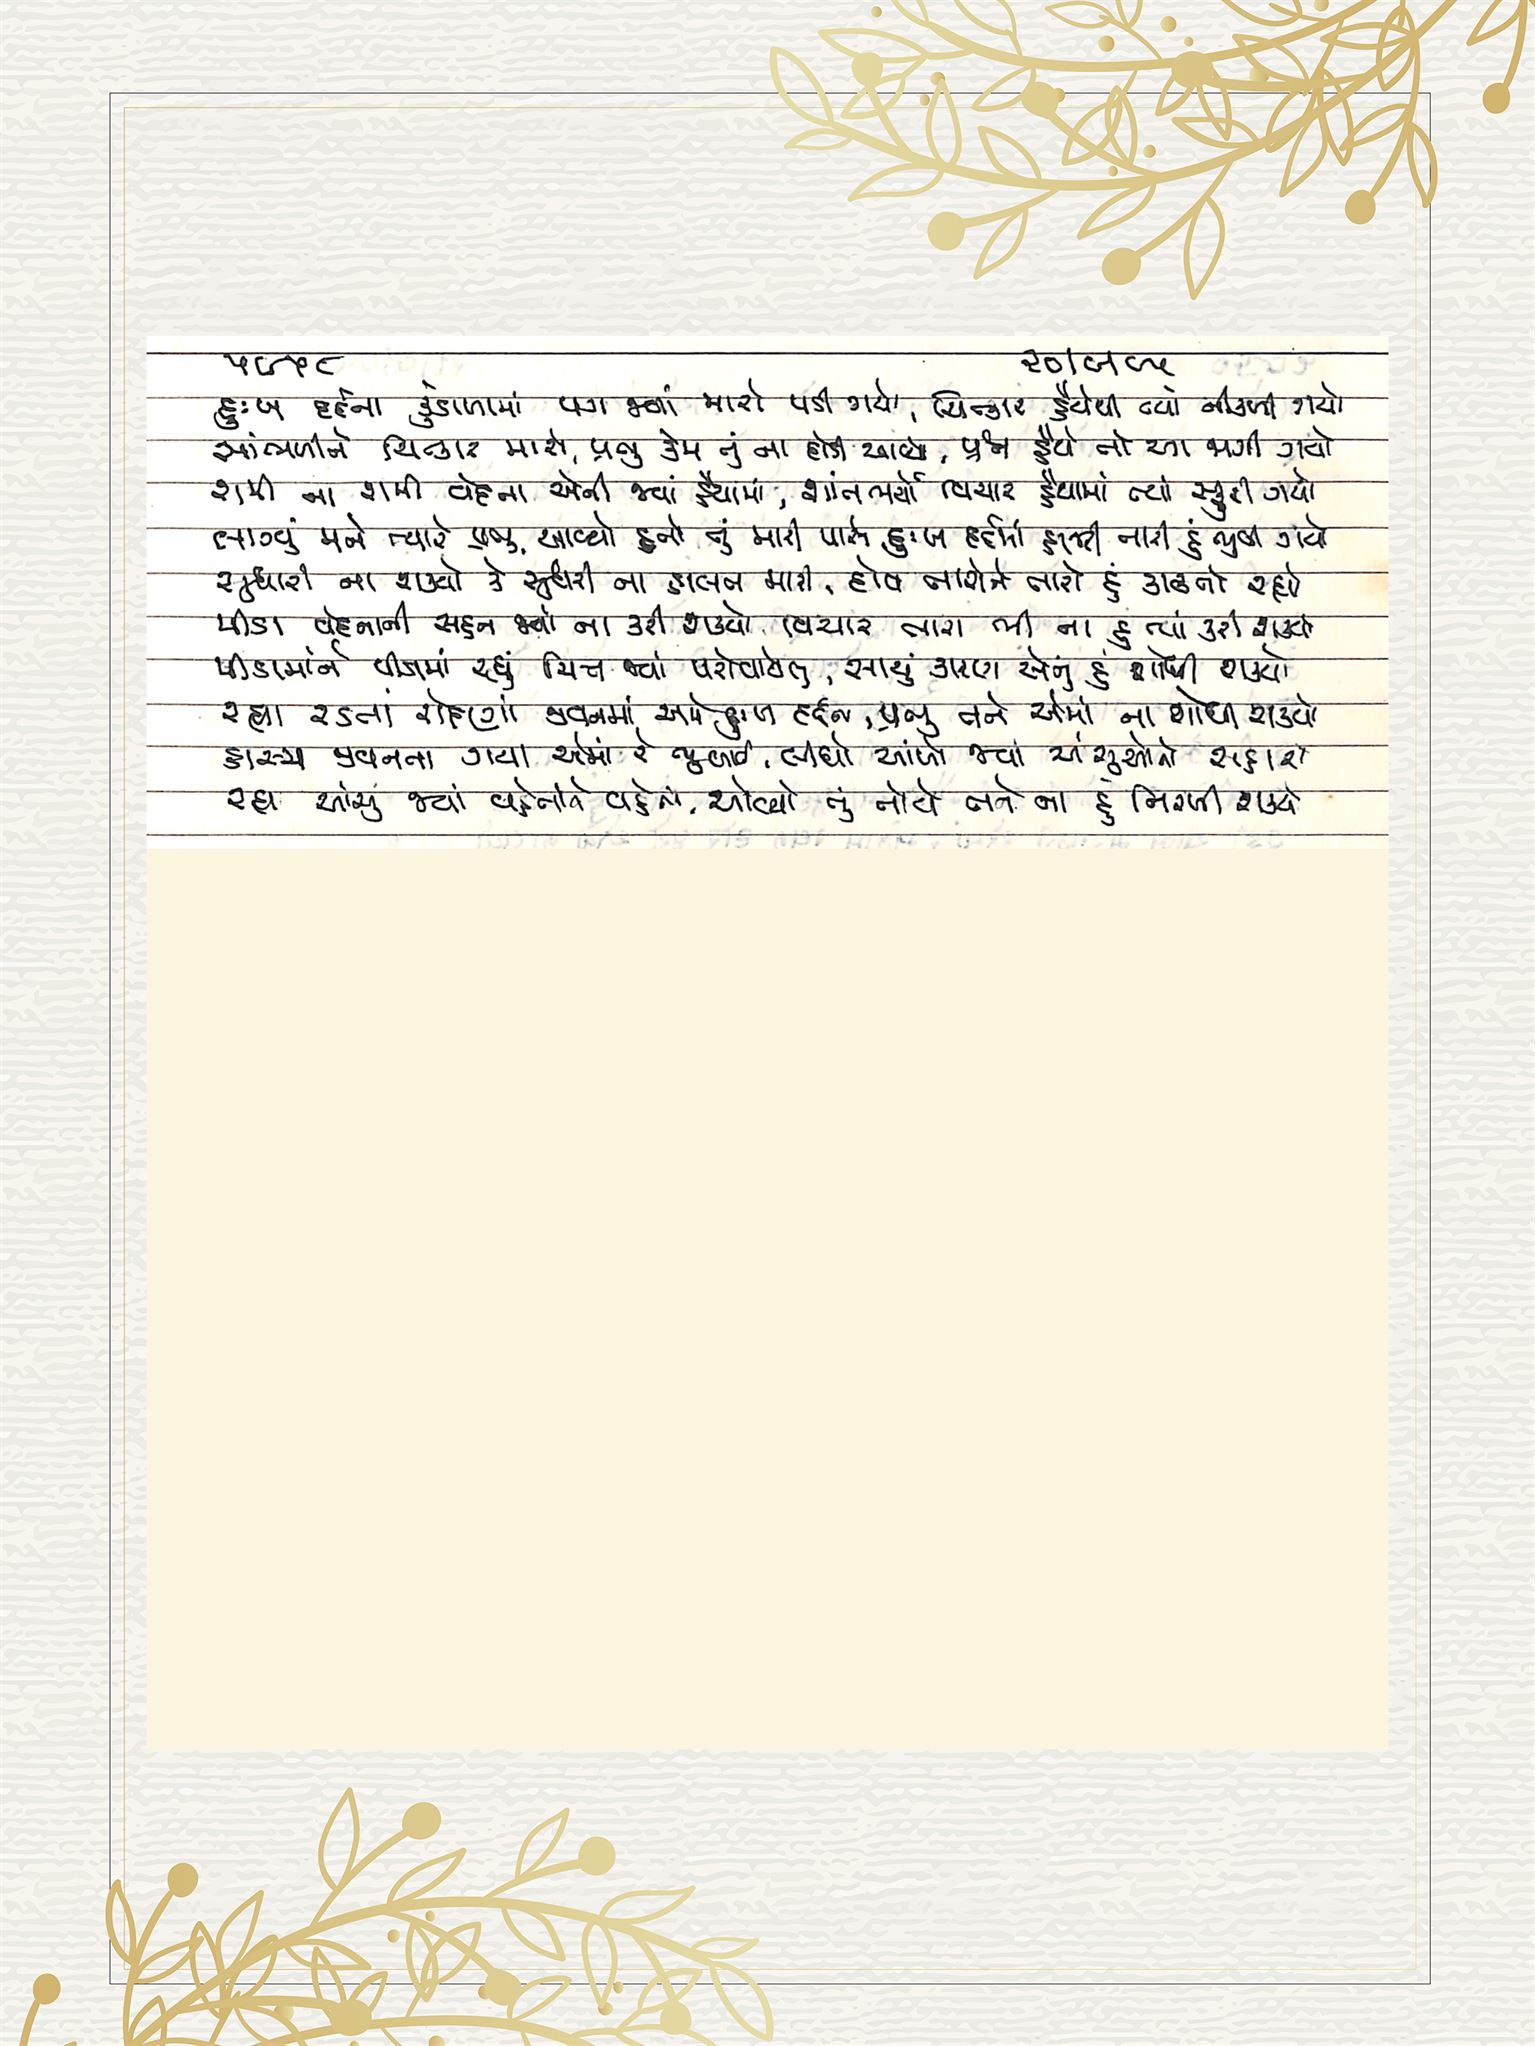 ૫૮૫૮ ૨૦|૭|૯૫
દુઃખ દર્દના કુંડાળામાં પગ જ્યાં મારો પડી ગયો, ચિત્કાર હૈયેથી ત્યાં નીકળી ગયો
સાંભળીને ચિત્કાર મારો, પ્રભુ કેમ તું ના દોડી આવ્યો, પ્રશ્ન હૈયે તો આ જાગી ગયો
શમી ના શમી વેદના એની જ્યાં હૈયામાં, શાંત ભર્યો વિચાર હૈયામાં ત્યાં સ્ફુરી ગયો
લાગ્યું મને ત્યારે પ્રભુ, આવ્યો હતો તું મારી પાસે દુઃખ દર્દમાં હાજરી તારી હું ભુલી ગયો
સુધારી ના શક્યો કે સુધરી ના હાલત મારી, દોષ તારોને તારો હું કાઢતો રહ્યો
પીડા વેદનાની સહન જ્યાં ના કરી શક્યો વિચાર તારા ભી ના હું ત્યાં કરી શક્યો
પીડામાંને પીડામાં રહ્યું ચિત્ત જ્યાં પરોવાયેલું, સાચું કારણ એનું હું શોધી શક્યો
રહ્યા રડતાં રોદણાં જીવનમાં અમે દુઃખ દર્દના, પ્રભુ તને એમાં ના શોધી શક્યો
હાસ્ય જીવનના ગયા એમાં રે ભુલાઈ, લીધો આંખે જ્યાં આંસુઓનો સહારો
રહ્યા આંસુ જ્યાં વહેતાંને વહેતાં, આવ્યો તું તોયે તને ના હું નિરખી શક્યો